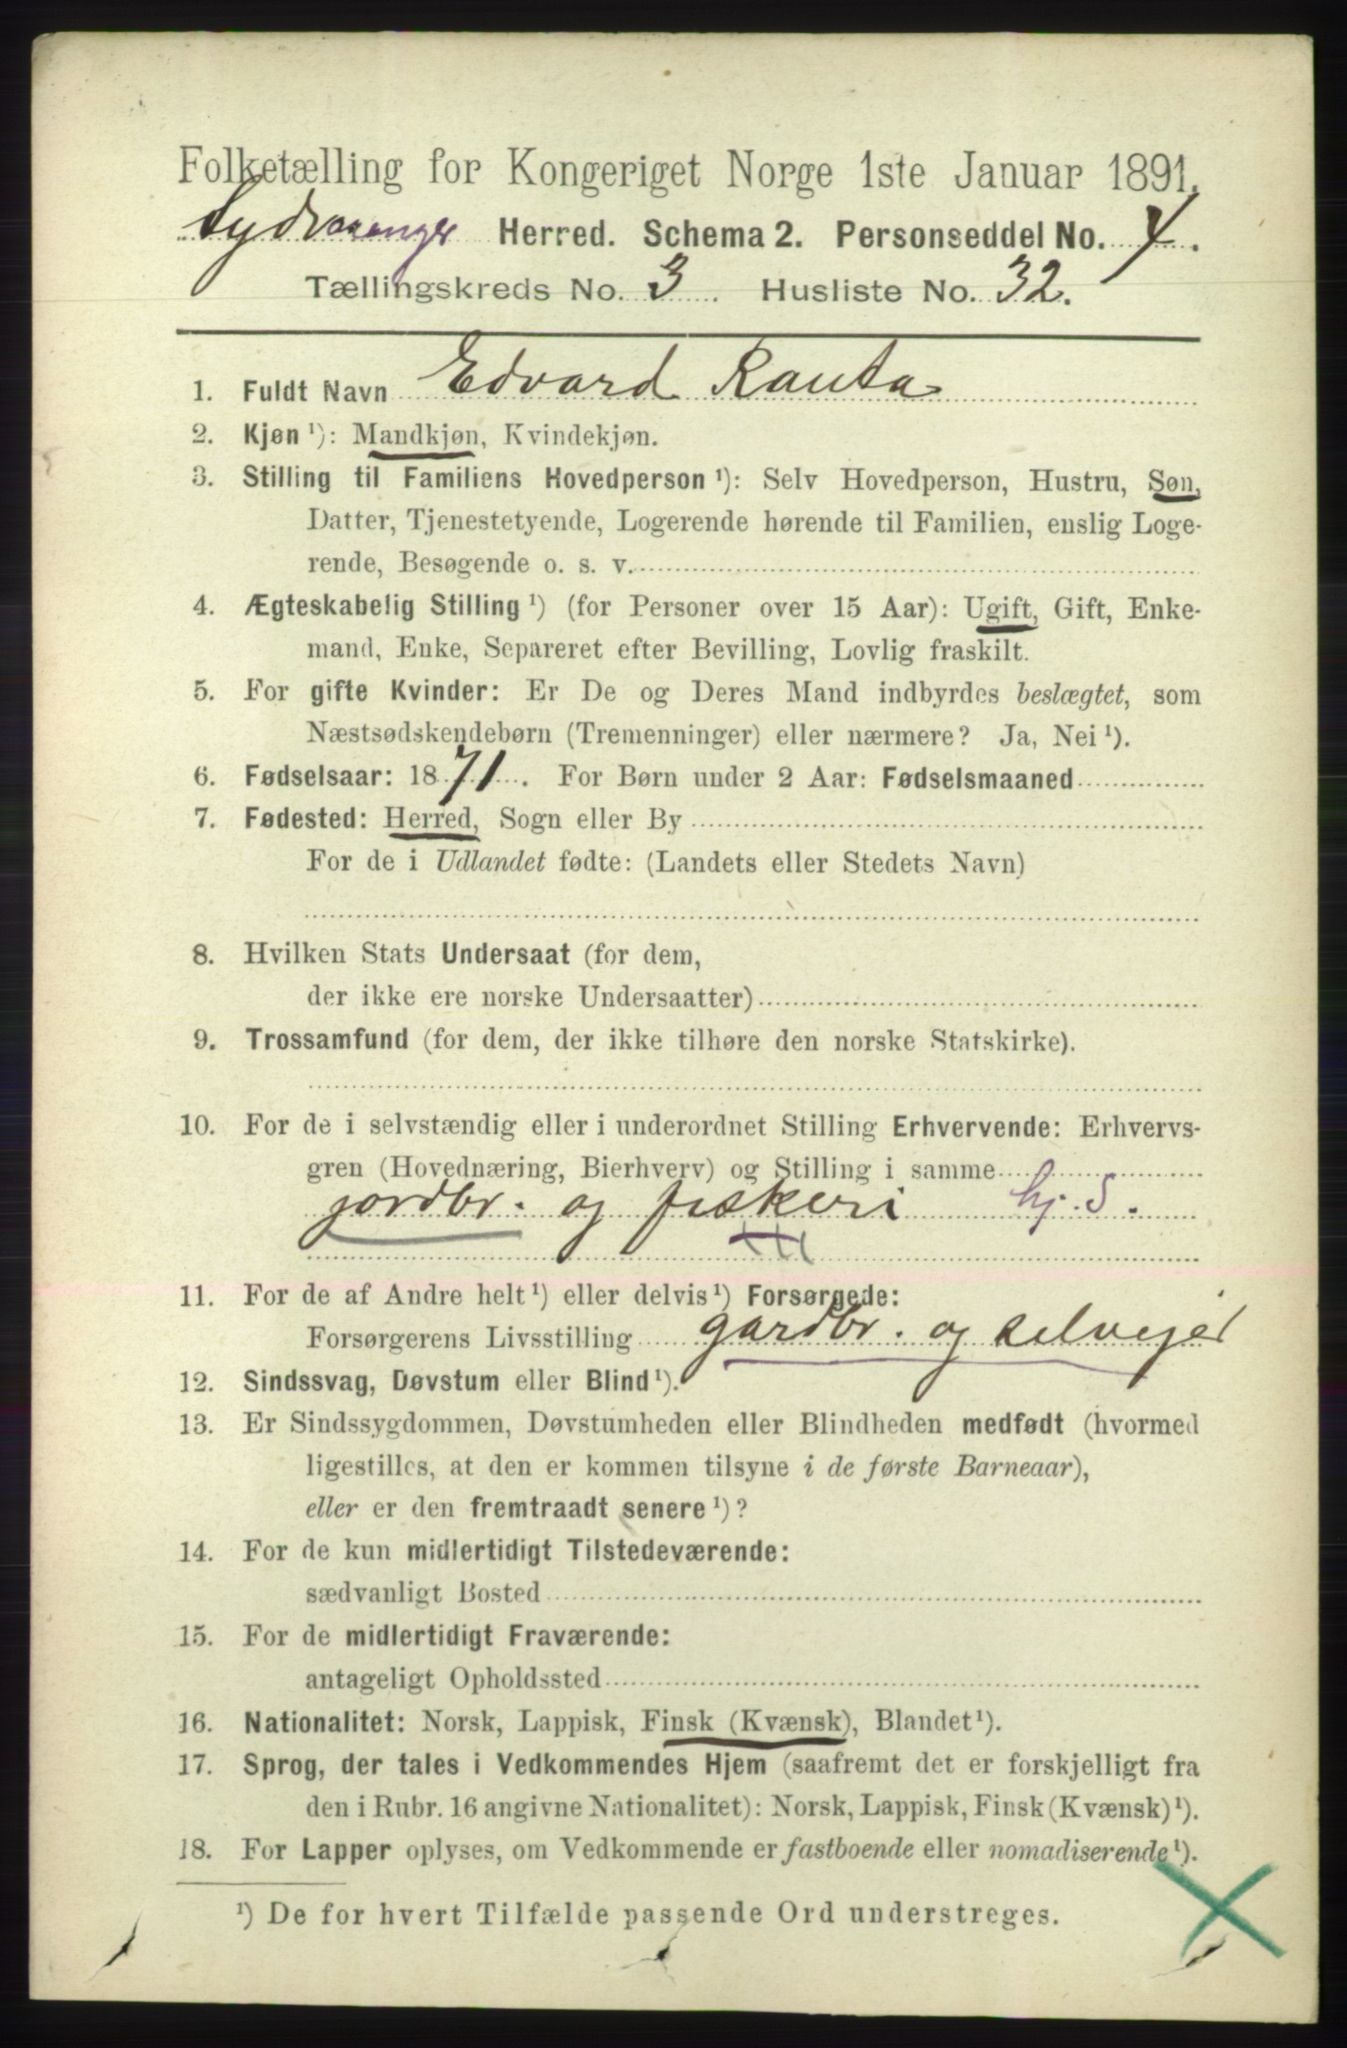 Folketælling for Kongeriget Norge 1ste Januar 1891.
Sydvaranger Herred. Schema 2. Personseddel No. 4.
Tællingskreds No. 3. Husliste No. 32.
1. Fuldt Navn Edvard Rauta
2. Kjøn ¹): Mandkjøn, Kvindekjøn.
3. Stilling til Familiens Hovedperson ¹): Selv Hovedperson, Hustru, Søn,
Datter, Tjenestetyende, Logerende hørende til Familien, enslig Loge-
rende, Besøgende o. s. v.
4. Ægteskabelig Stilling ¹) (for Personer over 15 Aar): Ugift, Gift, Enke-
mand, Enke, Separeret efter Bevilling, Lovlig fraskilt.
5. For gifte Kvinder: Er De og Deres Mand indbyrdes beslægtet, som
Næstsødskendebørn (Tremenninger) eller nærmere? Ja, Nei ¹).
6. Fødselsaar: 1871. For Børn under 2 Aar: Fødselsmaaned
7. Fødested: Herred, Sogn eller By
For de i Udlandet fødte: (Landets eller Stedets Navn)
8. Hvilken Stats Undersaat (for dem,
der ikke ere norske Undersaatter)
9. Trossamfund (for dem, der ikke tilhøre den norske Statskirke).
10. For de i selvstændig eller i underordnet Stilling Erhvervende: Erhvervs-
gren (Hovednæring, Bierhverv) og Stilling i samme
jordbr. og fiskeri hj. S.
11. For de af Andre helt ¹) eller delvis ¹) Forsørgede:
Forsørgerens Livsstilling gardbr. og selvejer
12. Sindssvag, Døvstum eller Blind ¹).
13. Er Sindssygdommen, Døvstumheden eller Blindheden medfødt (hvormed
ligestilles, at den er kommen tilsyne i de første Barneaar),
eller er den fremtraadt senere ¹)?
14. For de kun midlertidigt Tilstedeværende:
sædvanligt Bosted
15. For de midlertidigt Fraværende:
antageligt Opholdssted
16. Nationalitet: Norsk, Lappisk, Finsk (Kvænsk), Blandet ¹).
17. Sprog, der tales i Vedkommendes Hjem (saafremt det er forskjelligt fra
den i Rubr. 16 angivne Nationalitet): Norsk, Lappisk, Finsk (Kvænsk) ¹).
18. For Lapper oplyses, om Vedkommende er fastboende eller nomadiserende ¹).
¹) De for hvert Tilfælde passende Ord understreges.